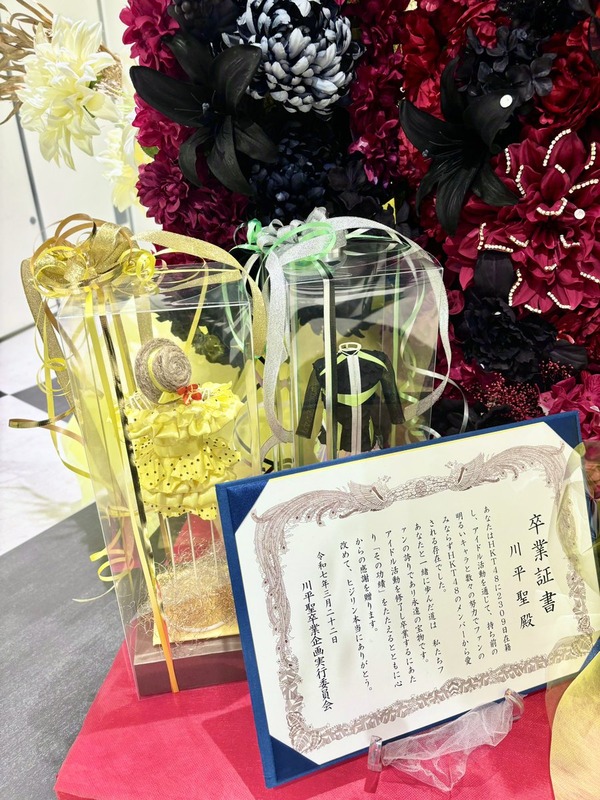 卒業証書
川平聖殿
あなたはHKT48に2309日在籍
し、アイドル活動を通じて、持ち前の
明るいキャラと数々の努力で、ファンの
みならずHKT48のメンバーから愛
される存在でした。
あなたと一緒に歩んだ道は　私たちフ
ァンの誇りであり永遠の宝物です。
アイドル活動を修了し卒業するにあた
り「その功績」をたたえるとともに心
からの感謝を贈ります。
改めて、ヒジリン本当にありがとう。
令和七年三月二十二日
川平聖卒業企画実行委員会